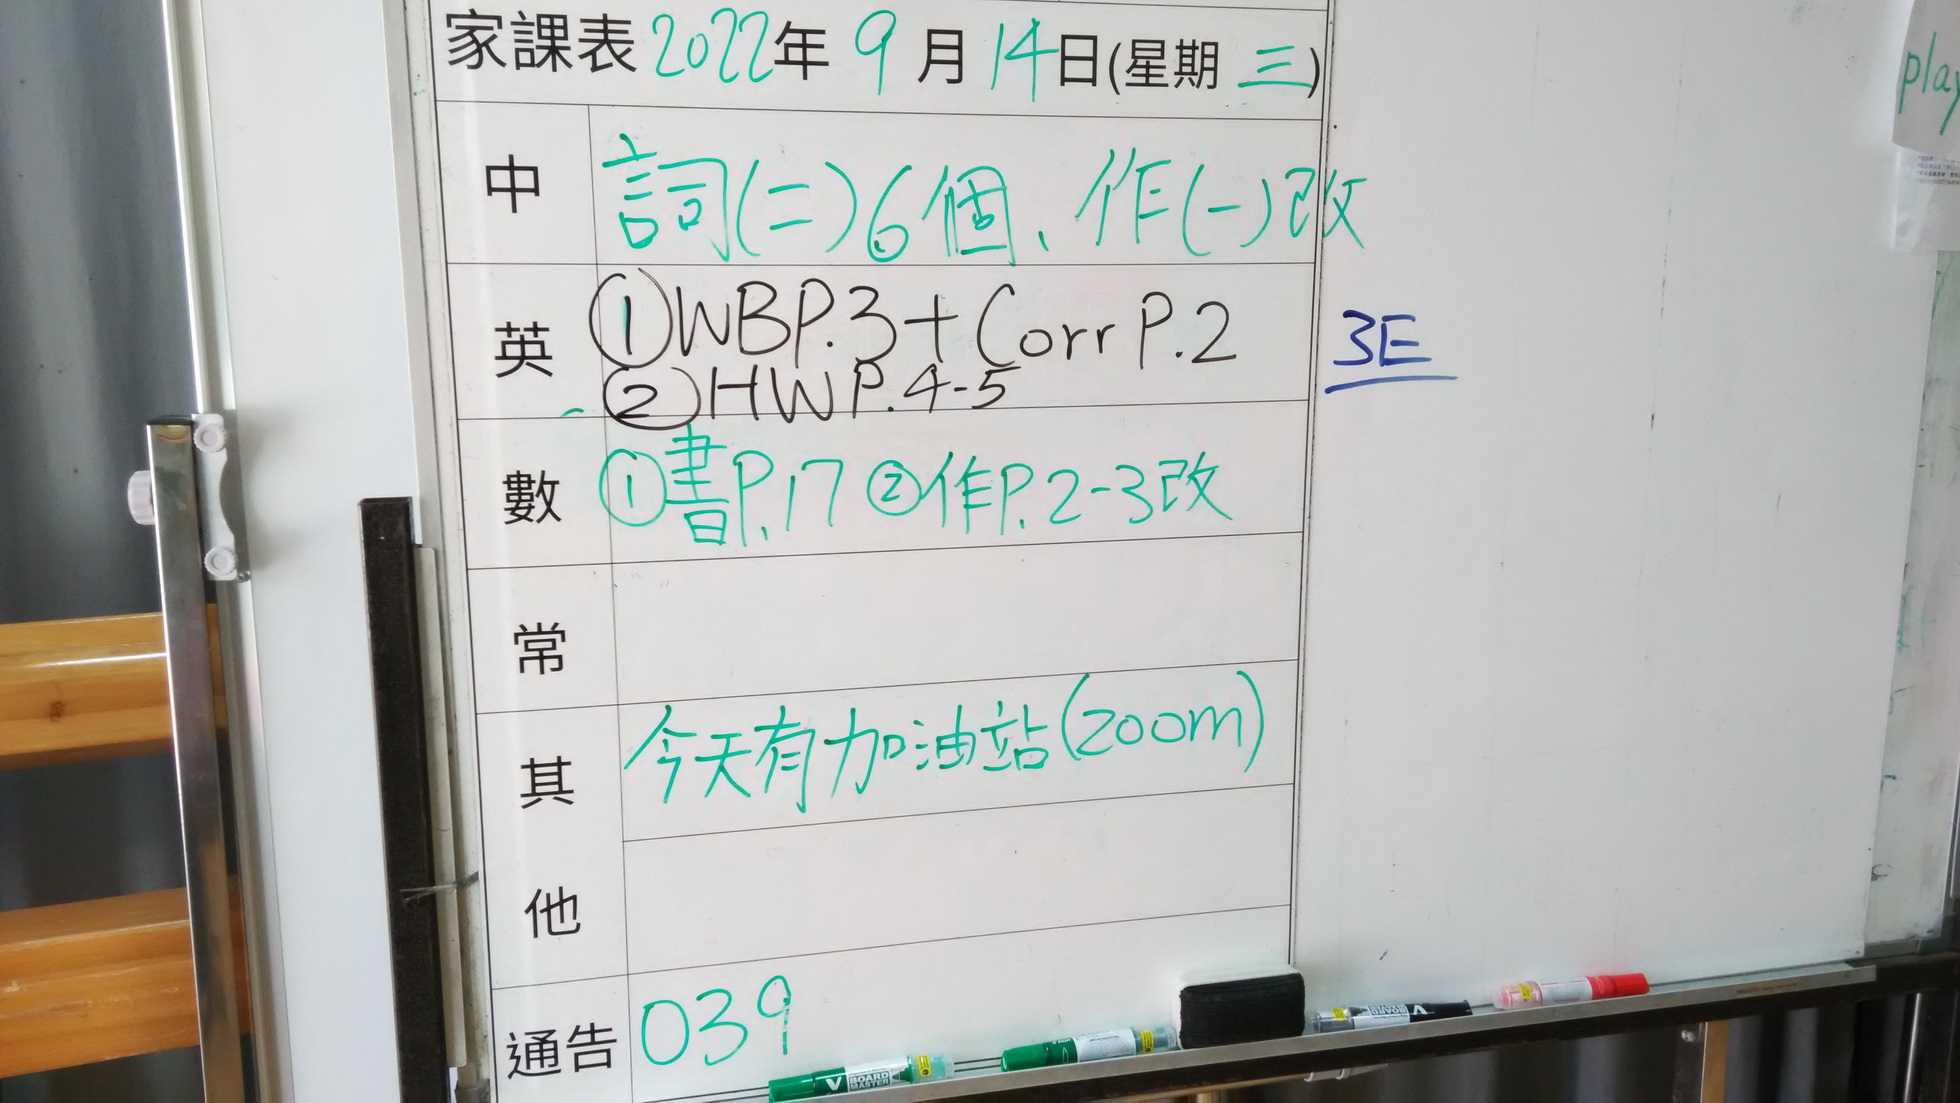 家課表 2022年 9月 14日(星期 三)
中 詞(二)6個、作(一)改
英 ①WBP.3+Corr P.2
②HWP.4-5
3E
數 ①書P.17 ②作P.2-3改
常
其他 今天有加油站(zoom)
通告 039
play
V BOARD MASTER